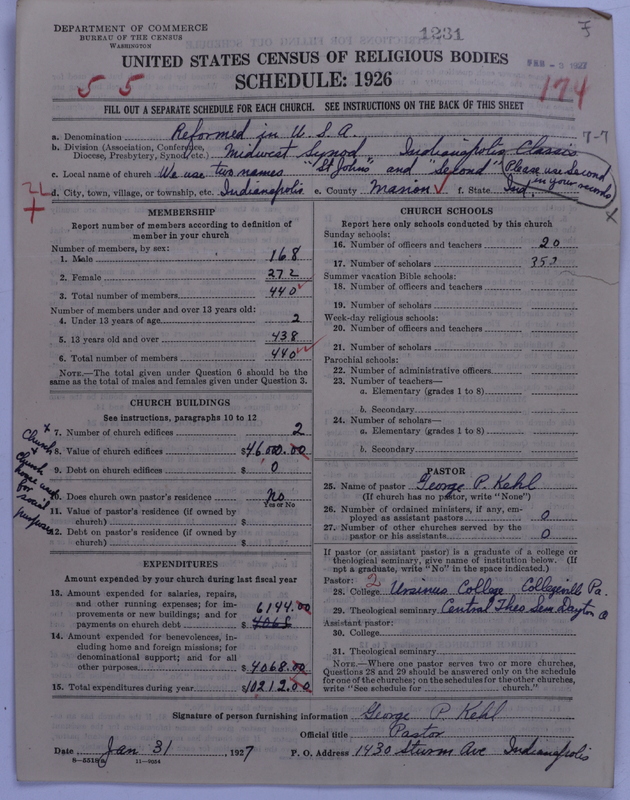 DEPARTMENT OF COMMERCE
BUREAU OF THE CENSUS
WASHINGTON
1231
UNITED STATES CENSUS OF RELIGIOUS BODIES
SCHEDULE: 1926
5 5
174
FILL OUT A SEPARATE SCHEDULE FOR EACH CHURCH. SEE INSTRUCTIONS ON THE BACK OF THIS SHEET
a. Denomination Reformed in U.S.A. 7-7
b. Division (Association, Conference, Diocese, Presbytery, Synod, etc.) Midwest Synod Indianapolis Classis
c. Local name of church We use two names "St Johns" and "Second" Please use Second in your records
d. City, town, village, or township, etc. Indianapolis e. County Marion f. State Ind.
MEMBERSHIP
Report number of members according to definition of member in your church
Number of members, by sex:
1. Male 168
2. Female 272
3. Total number of members 440
Number of members under and over 13 years old:
4. Under 13 years of age 2
5. 13 years old and over 438
6. Total number of members 440
NOTE.—The total given under Question 6 should be the same as the total of males and females given under Question 3.
CHURCH BUILDINGS
See instructions, paragraphs 10 to 12
7. Number of church edifices 2
8. Value of church edifices $46,000.00
9. Debt on church edifices $ 0
10. Does church own pastor's residence no
Yes or No
11. Value of pastor's residence (if owned by church) $
12. Debt on pastor's residence (if owned by church) $
x Church
+ Church
home used
for
social
purposes
EXPENDITURES
Amount expended by your church during last fiscal year
13. Amount expended for salaries, repairs, and other running expenses; for improvements or new buildings; and for payments on church debt $ 6144.00
4068
14. Amount expended for benevolences, including home and foreign missions; for denominational support; and for all other purposes $ 4068.00
15. Total expenditures during year $10212.00
CHURCH SCHOOLS
Report here only schools conducted by this church
Sunday schools:
16. Number of officers and teachers 20
17. Number of scholars
Summer vacation Bible schools:
18. Number of officers and teachers
19. Number of scholars
Week-day religious schools:
20. Number of officers and teachers
21. Number of scholars
Parochial schools:
22. Number of administrative officers
23. Number of teachers—
a. Elementary (grades 1 to 8)
b. Secondary
24. Number of scholars—
a. Elementary (grades 1 to 8)
b. Secondary
PASTOR
25. Name of pastor George P. Kehl
(If church has no pastor, write "None")
26. Number of ordained ministers, if any, employed as assistant pastors 0
27. Number of other churches served by the pastor or his assistants 0
If pastor (or assistant pastor) is a graduate of a college or theological seminary, give name of institution below. (If not a graduate, write "No" in the space indicated.)
Pastor: 2
28. College Ursinus College Collegeville Pa.
29. Theological seminary Central Theo. Sem. Dayton O
Assistant pastor:
30. College
31. Theological seminary
NOTE.—Where one pastor serves two or more churches, Questions 28 and 29 should be answered only on the schedule for one of the churches; on the schedules for the other churches, write "See schedule for ______ church."
Signature of person furnishing information George P. Kehl
Official title Pastor
Date Jan 31, 1927 P. O. Address 1430 Sturm Ave Indianapolis